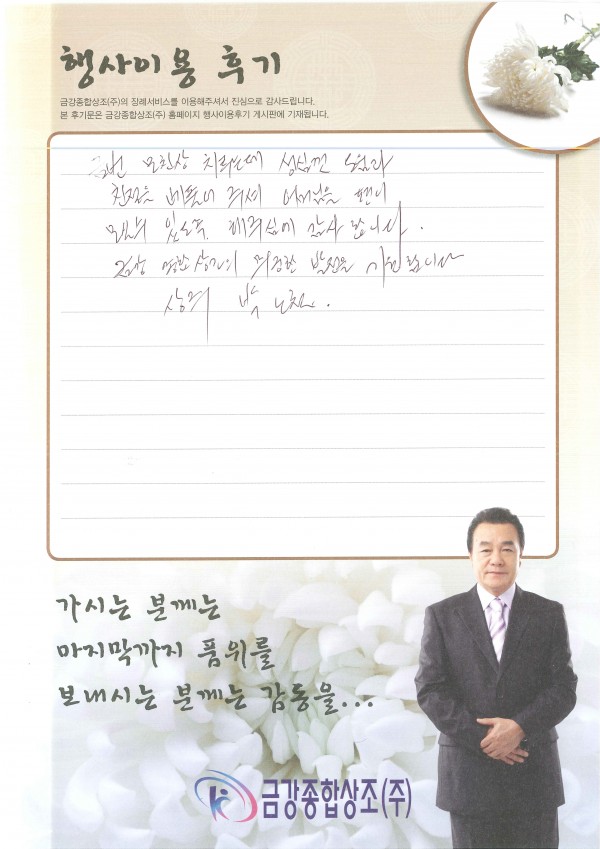 행사이용 후기
금강종합상조(주)의 장례서비스를 이용해주셔서 진심으로 감사드립니다.
본 후기문은 금강종합상조(주) 홈페이지 행사이용후기 게시판에 기재됩니다.
금번 모친상 치르는데 성심껏 도움과
친절을 베풀어 주셔 어머님을 편히
모실수 있도록 해주심에 감사 합니다.
금강 종합상조의 무궁한 발전을 기원합니다
상주 박
가시는 분께는
마지막까지 품위를
보내시는 분께는 감동을...
금강종합상조(주)